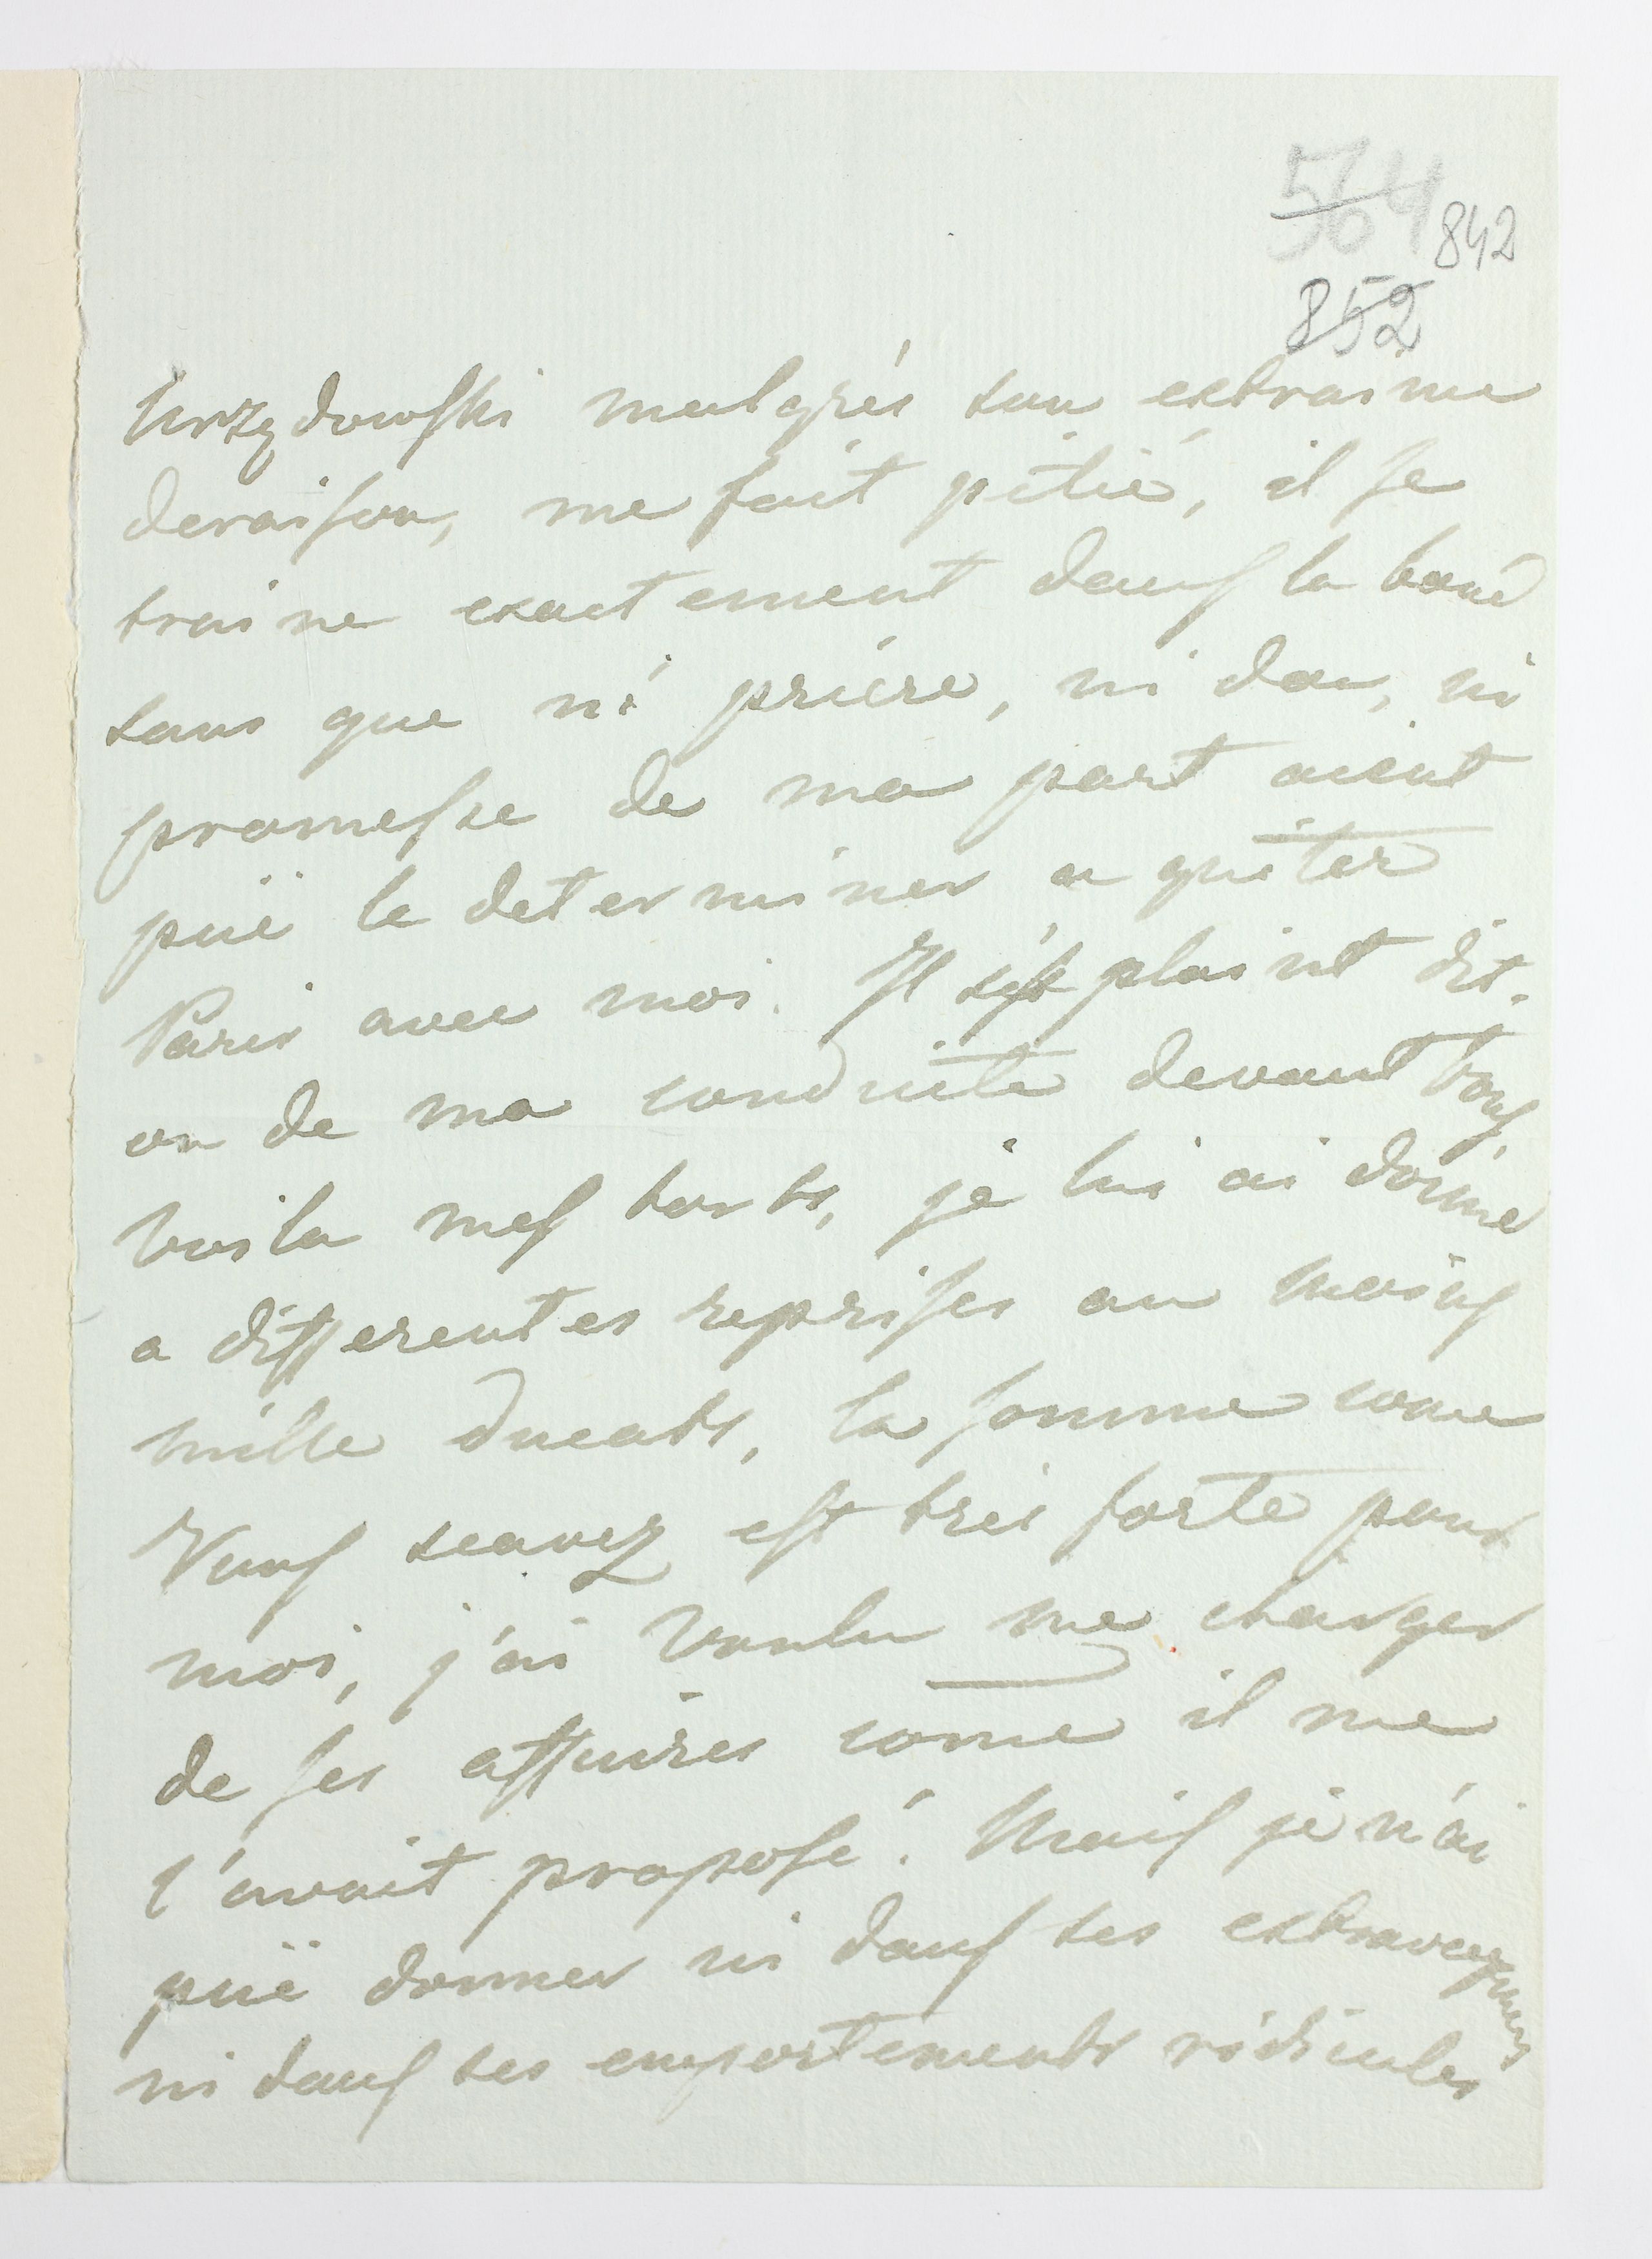 564
842
852
Urzędowski malgrés son extraime
deraison, me fait pitié, il se
traine exactement dans la boué
sans que ni priére, ni don, ni
promesse de ma part aient
puë le determiner a quiter
Paris avec moi. Il se plaint dit-
on de ma conduite devant tous,
voila mes torts, je lui ai donné
a differentes reprises au moins
mille ducats, la somme come
Vous scavez est trés forte pour
moi, j'ai voulu me charger
de ses affaires come il me
l'avait proposé. Mais je n'ai
puë donner ni dans ses extravagances
ni dans ses emportements ridicules